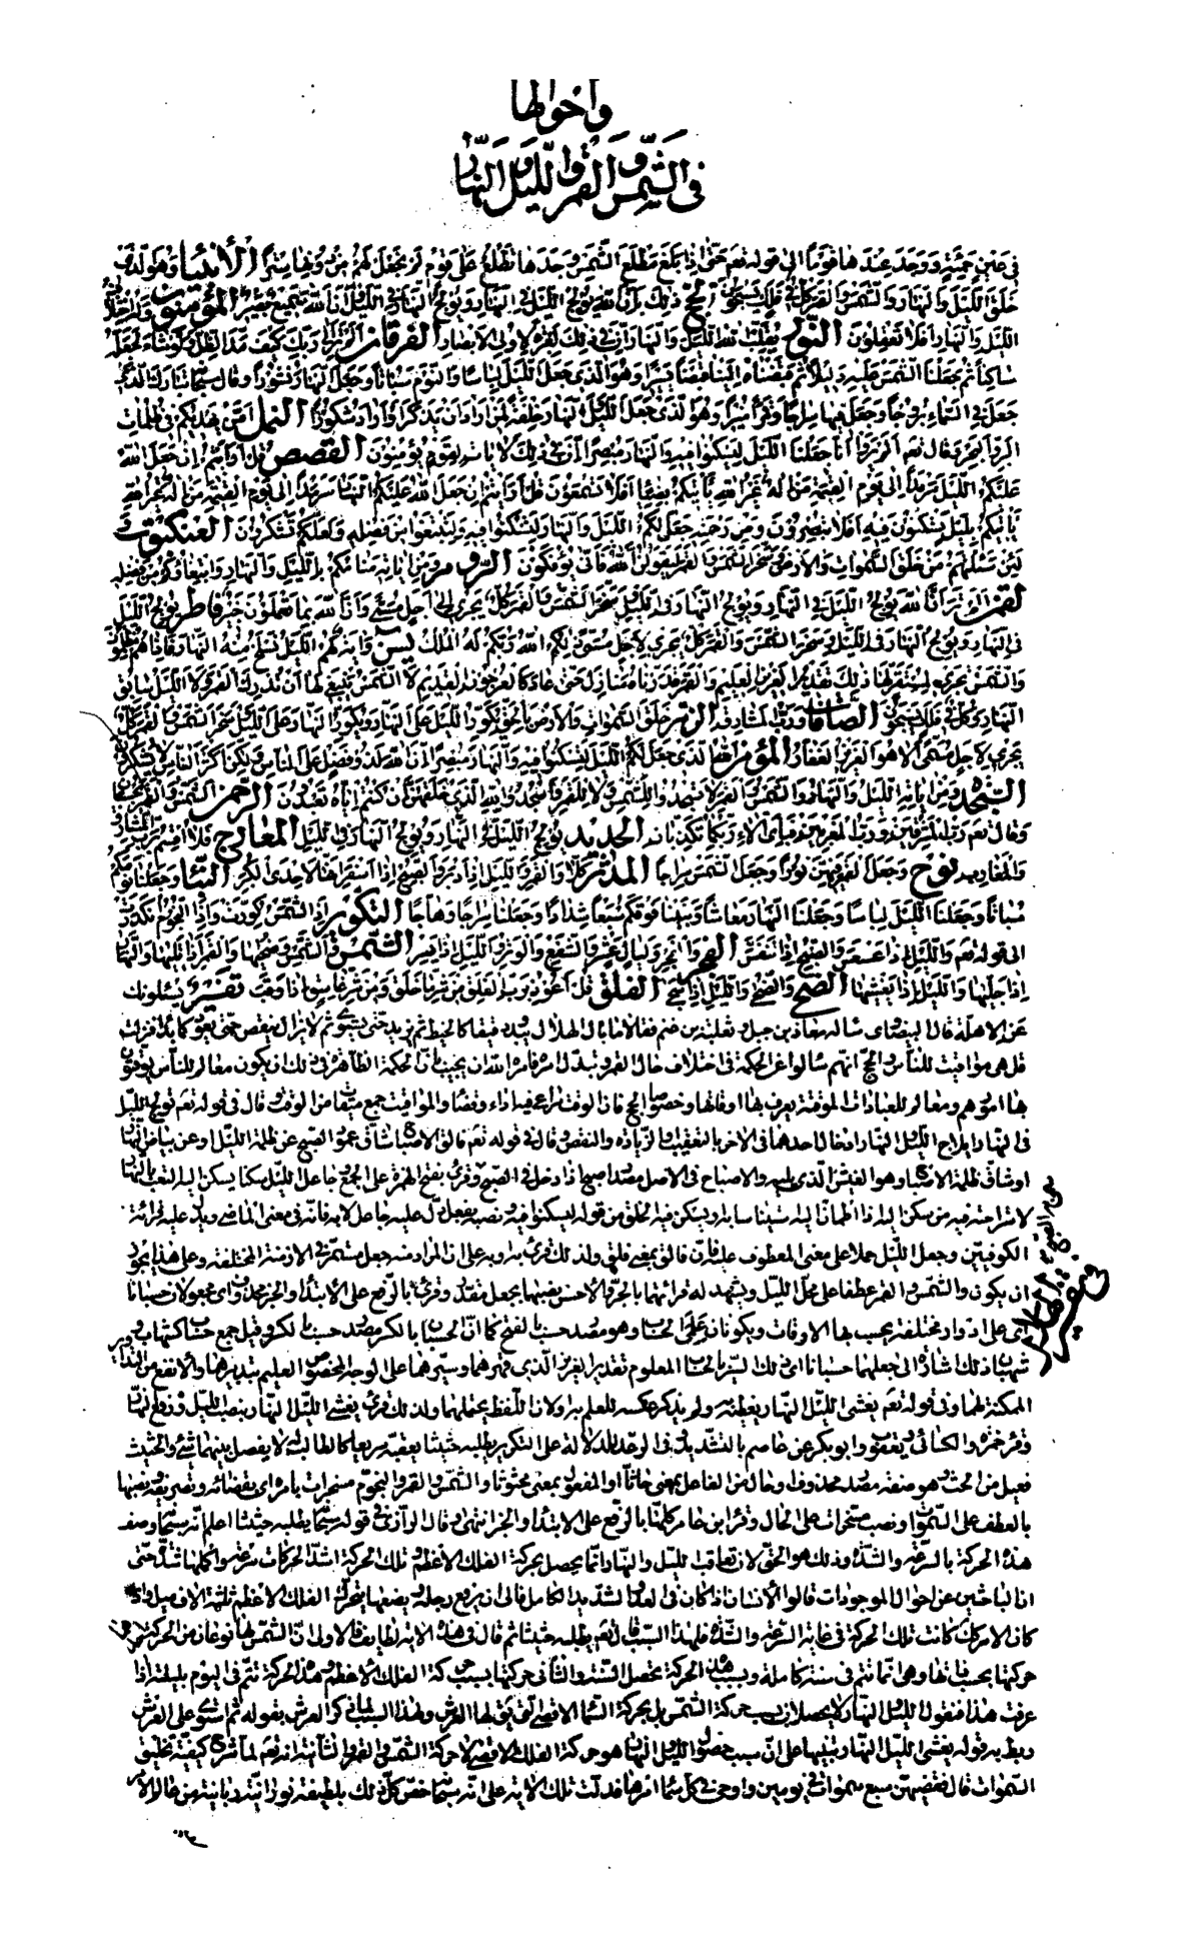 وأحوالها
في الشمس والقمر والليل والنهار
في عين حمئة ووجد عندها قوما إلى قوله تعالى حتى إذا بلغ مطلع الشمس وجدها تطلع على قوم لم نجعل لهم من دونها سترا الأنبياء وهو الذي
خلق الليل والنهار والشمس والقمر كل في فلك يسبحون الحج ذلك بأن الله يولج الليل في النهار ويولج النهار في الليل وأن الله سميع بصير المؤمنون وله اختلاف
الليل والنهار أفلا تعقلون النور يقلب الله الليل والنهار إن في ذلك لعبرة لأولي الأبصار الفرقان ألم تر إلى ربك كيف مد الظل ولو شاء لجعله
ساكنا ثم جعلنا الشمس عليه دليلا ثم قبضناه إلينا قبضا يسيرا وهو الذي جعل لكم الليل لباسا والنوم سباتا وجعل النهار نشورا وقال سبحانه تبارك الذي
جعل في السماء بروجا وجعل فيها سراجا وقمرا منيرا وهو الذي جعل الليل والنهار خلفة لمن أراد أن يذكر أو أراد شكورا النمل أمن يهديكم في ظلمات
البر والبحر وقال تعالى ألم يروا أنا جعلنا الليل ليسكنوا فيه والنهار مبصرا إن في ذلك لآيات لقوم يؤمنون القصص قل أرأيتم إن جعل الله
عليكم الليل سرمدا إلى يوم القيمة من إله غير الله يأتيكم بضياء أفلا تسمعون قل أرأيتم إن جعل الله عليكم النهار سرمدا إلى يوم القيمة من إله غير الله
يأتيكم بليل تسكنون فيه أفلا تبصرون ومن رحمته جعل لكم الليل والنهار لتسكنوا فيه ولتبتغوا من فضله ولعلكم تشكرون العنكبوت
لئن سئلتهم من خلق السموات والأرض وسخر الشمس والقمر ليقولن الله فأنى يؤفكون الروم ومن آياته منامكم بالليل والنهار وابتغاؤكم من فضله
لقمن ألم تر أن الله يولج الليل في النهار ويولج النهار في الليل وسخر الشمس والقمر كل يجري إلى أجل مسمى وأن الله بما تعملون خبير فاطر يولج الليل
في النهار ويولج النهار في الليل وسخر الشمس والقمر كل يجري لأجل مسمى ذلكم الله ربكم له الملك يس وآية لهم الليل نسلخ منه النهار فإذا هم مظلمون
والشمس تجري لمستقر لها ذلك تقدير العزيز العليم والقمر قدرناه منازل حتى عاد كالعرجون القديم لا الشمس ينبغي لها أن تدرك القمر ولا الليل سابق
النهار وكل في فلك يسبحون الصافات ورب المشارق الزمر خلق السموات والأرض بالحق يكور الليل على النهار ويكور النهار على الليل وسخر الشمس والقمر كل
يجري لأجل مسمى ألا هو العزيز الغفار المؤمن الله الذي جعل لكم الليل لتسكنوا فيه والنهار مبصرا إن الله لذو فضل على الناس ولكن أكثر الناس لا يشكرون
السجدة ومن آياته الليل والنهار والشمس والقمر لا تسجدوا للشمس ولا للقمر واسجدوا لله الذي خلقهن إن كنتم إياه تعبدون الرحمن الشمس والقمر بحسبان
وقال تعالى رب المشرقين ورب المغربين فبأي آلاء ربكما تكذبان الحديد يولج الليل في النهار ويولج النهار في الليل المعارج فلا أقسم برب المشارق
والمغارب نوح وجعل القمر فيهن نورا وجعل الشمس سراجا المدثر كلا والقمر والليل إذا أدبر والصبح إذا أسفر إنها لإحدى الكبر النبأ وجعلنا نومكم
سباتا وجعلنا الليل لباسا وجعلنا النهار معاشا وبنينا فوقكم سبعا شدادا وجعلنا سراجا وهاجا التكوير إذا الشمس كورت وإذا النجوم انكدرت
إلى قوله تعالى والليل إذا عسعس والصبح إذا تنفس الفجر والفجر وليال عشر والشفع والوتر والليل إذا يسر الشمس والشمس وضحيها والقمر إذا تليها والنهار
إذا جليها والليل إذا يغشيها الضحى والضحى والليل إذا سجى الفلق قل أعوذ برب الفلق من شر ما خلق ومن شر غاسق إذا وقب تفسير يسئلونك
عن الأهلة قال البيضاوي سأله معاذ بن جبل وثعلبة بن غنم فقالا ما بال الهلال يبدو دقيقا كالخيط ثم يزيد حتى يستوي ثم لا يزال ينقص حتى يعود كما بدأ فنزلت
قل هي مواقيت للناس والحج إنهم سألوا عن الحكمة في اختلاف حال القمر وتبدل أمره فأمره الله أن يجيب بأن الحكمة الظاهرة في ذلك أن يكون معالم للناس يوقتون
بها أمورهم ومعالم للعبادات الموقتة يعرف بها أوقاتها وخصوصا الحج فإن الوقت مراعى فيه أداء وقضاء والمواقيت جمع ميقات من الوقت وقال في قوله تعالى تولج الليل
في النهار إيلاج الليل والنهار إدخال أحدهما في الآخر بالتعقيب أو الزيادة والنقص وقال في قوله تعالى فالق الإصباح شاق عمود الصبح عن ظلمة الليل أو عن بياض النهار
أو شاق ظلمة الإصباح وهو الغبش الذي يليه والإصباح في الأصل مصدر أصبح إذا دخل في الصبح وقرئ بفتح الهمزة على الجمع وجاعل الليل سكنا يسكن إليه التعب بالنهار
لاستراحته فيه من سكن إليه إذا اطمأن إليه استيناسا به أو يسكن فيه الخلق من قوله لتسكنوا فيه ونصبه بفعل دل عليه جاعل لا به فإنه في معنى الماضي ويدل عليه قراءة
الكوفيين وجعل الليل حملا على معنى المعطوف عليه فإن فالق بمعنى فلق ولذلك قرئ به أو به على أن المراد منه جعل مستمر في الأزمنة المختلفة وعلى هذا يجوز
أن يكون والشمس والقمر عطفا على محل الليل ويشهد له قراءتهما بالجر والأحسن نصبهما بجعل مقدرا وقرئ بالرفع على الابتداء والخبر محذوف أي مجعولان حسبانا
أي على أدوار مختلفة يحسب بها الأوقات ويكونان علمي الحسبان وهو مصدر حسب بالفتح كما أن الحسبان بالكسر مصدر حسب بالكسر وقيل جمع حساب كشهاب و
شهبان ذلك إشارة إلى جعلهما حسبانا أي ذلك السير بالحساب المعلوم تقدير العزيز الذي قهرهما وسيرهما على الوجه المخصوص العليم بتدبيرهما والأنفع من التداوير
الممكنة لهما وفي قوله تعالى يغشي الليل النهار يغطيه به ولم يذكر عكسه للعلم به أو لأن اللفظ يحتملهما ولذلك قرئ يغشي الليل النهار بنصب الليل ورفع النهار
وقرأ حمزة والكسائي ويعقوب وأبو بكر عن عاصم بالتشديد في الرعد للدلالة على التكرير يطلبه حثيثا يعقبه سريعا كالطالب له لا يفصل بينهما شيء والحثيث
فعيل من الحث وهو صفة مصدر محذوف أو حال من الفاعل بمعنى حاثا أو المفعول بمعنى محثوثا والشمس والقمر والنجوم مسخرات بأمره أي بقضائه وتصريفه ونصبها
بالعطف على السموات ونصب مسخرات على الحال وقرأ ابن عامر كلها بالرفع على الابتداء والخبر انتهى وقال الرازي في قوله سبحانه يطلبه حثيثا اعلم أنه سبحانه وصف
هذه الحركة بالسرعة والشدة وذلك هو الحق لأن تعاقب الليل والنهار إنما يحصل بحركة الفلك الأعظم وتلك الحركة أشد الحركات سرعة وأكملها شدة حتى
إن الباحثين عن أحوال الموجودات قالوا الإنسان إذا كان في العدو الشديد الكامل فإلى أن يرفع رجله ويضعها يتحرك الفلك الأعظم ثلثة آلاف ميل وإذا
كان الأمر كذلك كانت تلك الحركة في غاية السرعة والشدة فلهذا السبب قال تعالى يطلبه حثيثا ثم قال في هذه الآية لطايف فالأولى أن الشمس لها نوعان من الحركة أحدهما
حركتها بحسب ذاتها وهي إنما تتم في سنة كاملة وبسبب هذه الحركة تحصل السنة والثاني حركتها بسبب حركة الفلك الأعظم وهذه الحركة تتم في اليوم بليلته إذا
عرفت هذا فنقول الليل والنهار لا يحصلان بسبب حركة الشمس بل بحركة السماء الأقصى التي يقال لها العرش ولهذا السبب لما ذكر العرش بقوله ثم استوى على العرش
ربط به قوله يغشي الليل النهار تنبيها على أن سبب حصول الليل والنهار هو حركة الفلك الأقصى لا حركة الشمس والقمر والثانية أنه تعالى لما شرح كيفية تخليق
السموات قال فقضيهن سبع سموات في يومين وأوحى في كل سماء أمرها فدلت تلك الآية على أنه سبحانه خص كل ذلك بلطيفة نورانية ربانية من عالم الأمر